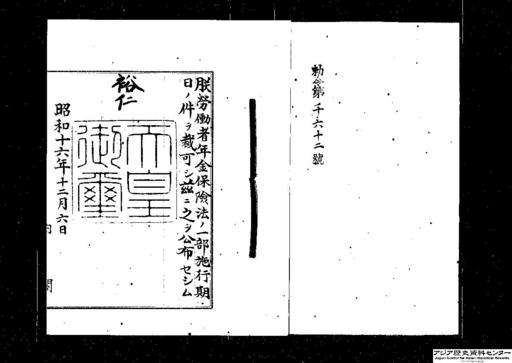 勅令第千六十二號
朕勞働者年金保險法ノ一部施行期
日ノ件ヲ裁可シ玆ニ之ヲ公布セシム
裕仁
天皇御璽
昭和十六年十二月六日
内閣
アジア歴史資料センター
Japan Center for Asian Historical Records